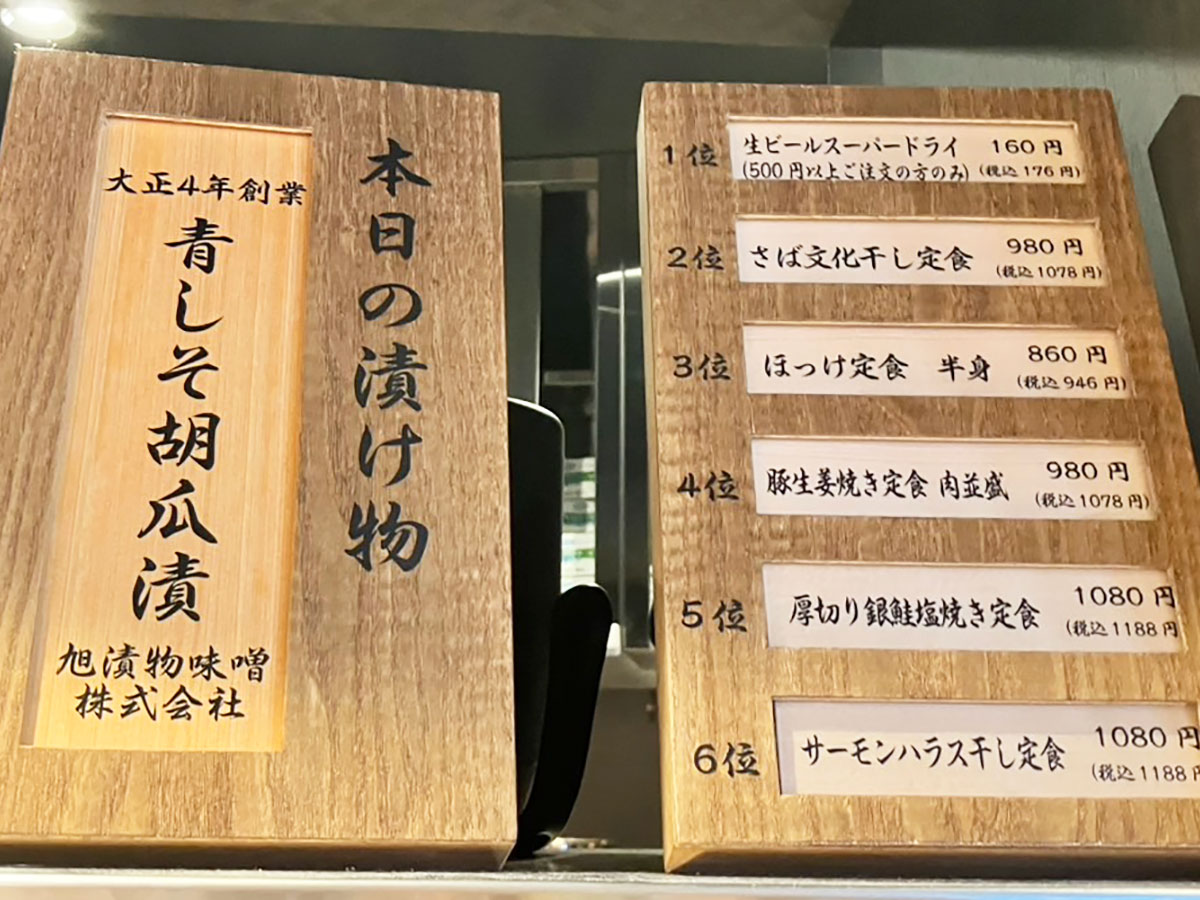 本日の漬け物
大正4年創業
青しそ胡瓜漬
旭漬物味噌
株式会社
1位 生ビールスーパードライ 160円
(500円以上ご注文の方のみ) (税込176円)
2位 さば文化干し定食 980円
(税込1078円)
3位 ほっけ定食 半身 860円
(税込946円)
4位 豚生姜焼き定食 肉並盛 980円
(税込1078円)
5位 厚切り銀鮭塩焼き定食 1080円
(税込1188円
6位 サーモンハラス干し定食 1080円
(税込1188円